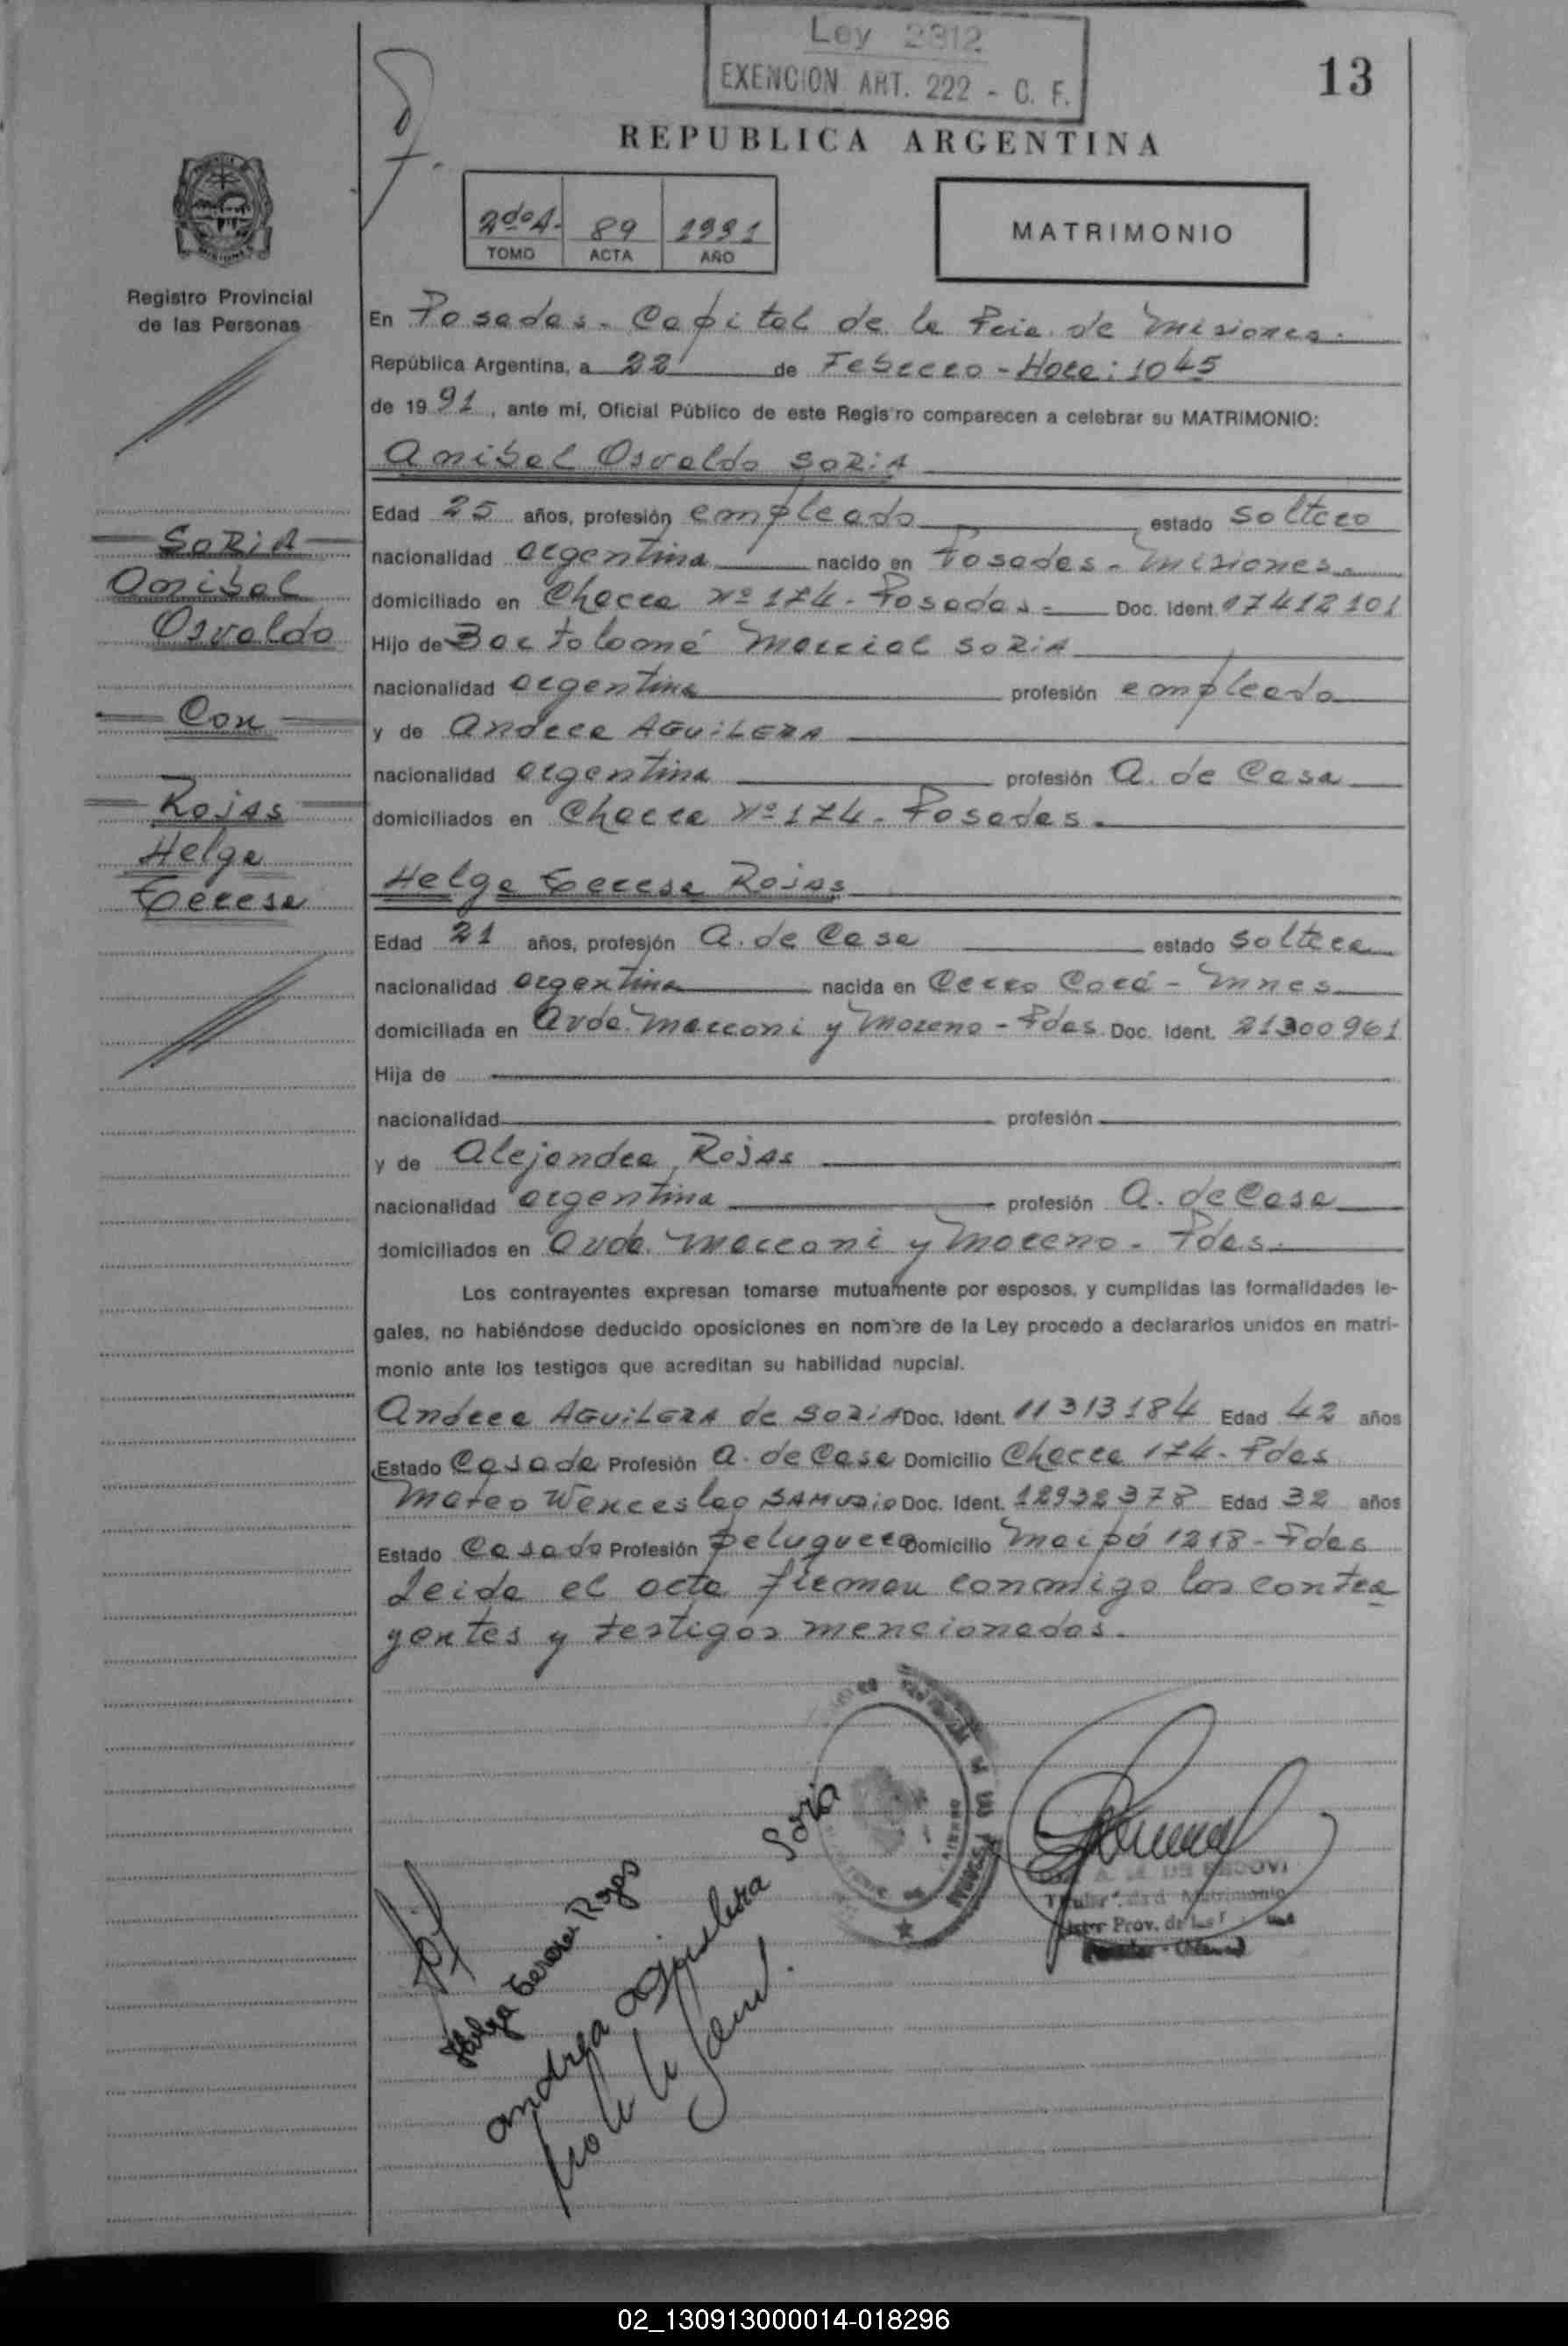 Ley 2312
EXENCION ART. 222 - C. F.
13
REPUBLICA ARGENTINA
2do A. 89 1991
TOMO ACTA AÑO
MATRIMONIO
Registro Provincial
de las Personas
En Posadas - Capital de la Pcia. de Misiones.
República Argentina, a 22 de Febrero - Hora: 1045
de 1991, ante mí, Oficial Público de este Registro comparecen a celebrar su MATRIMONIO:
Anibal Osvaldo SORIA
Edad 25 años, profesión empleado estado soltero
nacionalidad argentina nacido en Posadas - Misiones.
domiciliado en Chacra Nº 174 - Posadas - Doc. Ident. 17412101
Hijo de Bartolomé Marcial SORIA
nacionalidad argentina profesión empleado
y de Andrea AGUILERA
nacionalidad argentina profesión A. de Casa
domiciliados en Chacra Nº 174 - Posadas.
SORIA
Anibal
Osvaldo
Con
Rojas
Helga
Teresa
Helga Teresa Rojas
Edad 21 años, profesión A. de Casa estado soltera
nacionalidad argentina nacida en Cerro Corá - Mnes
domiciliada en Avda. Marconi y Moreno - Pdas. Doc. Ident. 21300961
Hija de
nacionalidad profesión
y de Alejandra Rojas
nacionalidad argentina profesión A. de Casa
domiciliados en Avda. Marconi y Moreno - Pdas.
Los contrayentes expresan tomarse mutuamente por esposos, y cumplidas las formalidades le-
gales, no habiéndose deducido oposiciones en nombre de la Ley procedo a declararlos unidos en matri-
monio ante los testigos que acreditan su habilidad nupcial.
Andrea AGUILERA de SORIA Doc. Ident. 11313184 Edad 42 años
Estado Casada Profesión A. de Casa Domicilio Chacra 174 - Pdas
Mateo Wenceslao SAMUDIO Doc. Ident. 12932378 Edad 32 años
Estado Casado Profesión peluquero Domicilio Maipú 1218 - Pdas
Leida el acta firman conmigo los contra
yentes y testigos mencionados.
Helga Teresa Rojas
Andrea Aguilera Soria
A. M. DE
Titular Matrimonio
Prov. de las
02_130913000014-018296